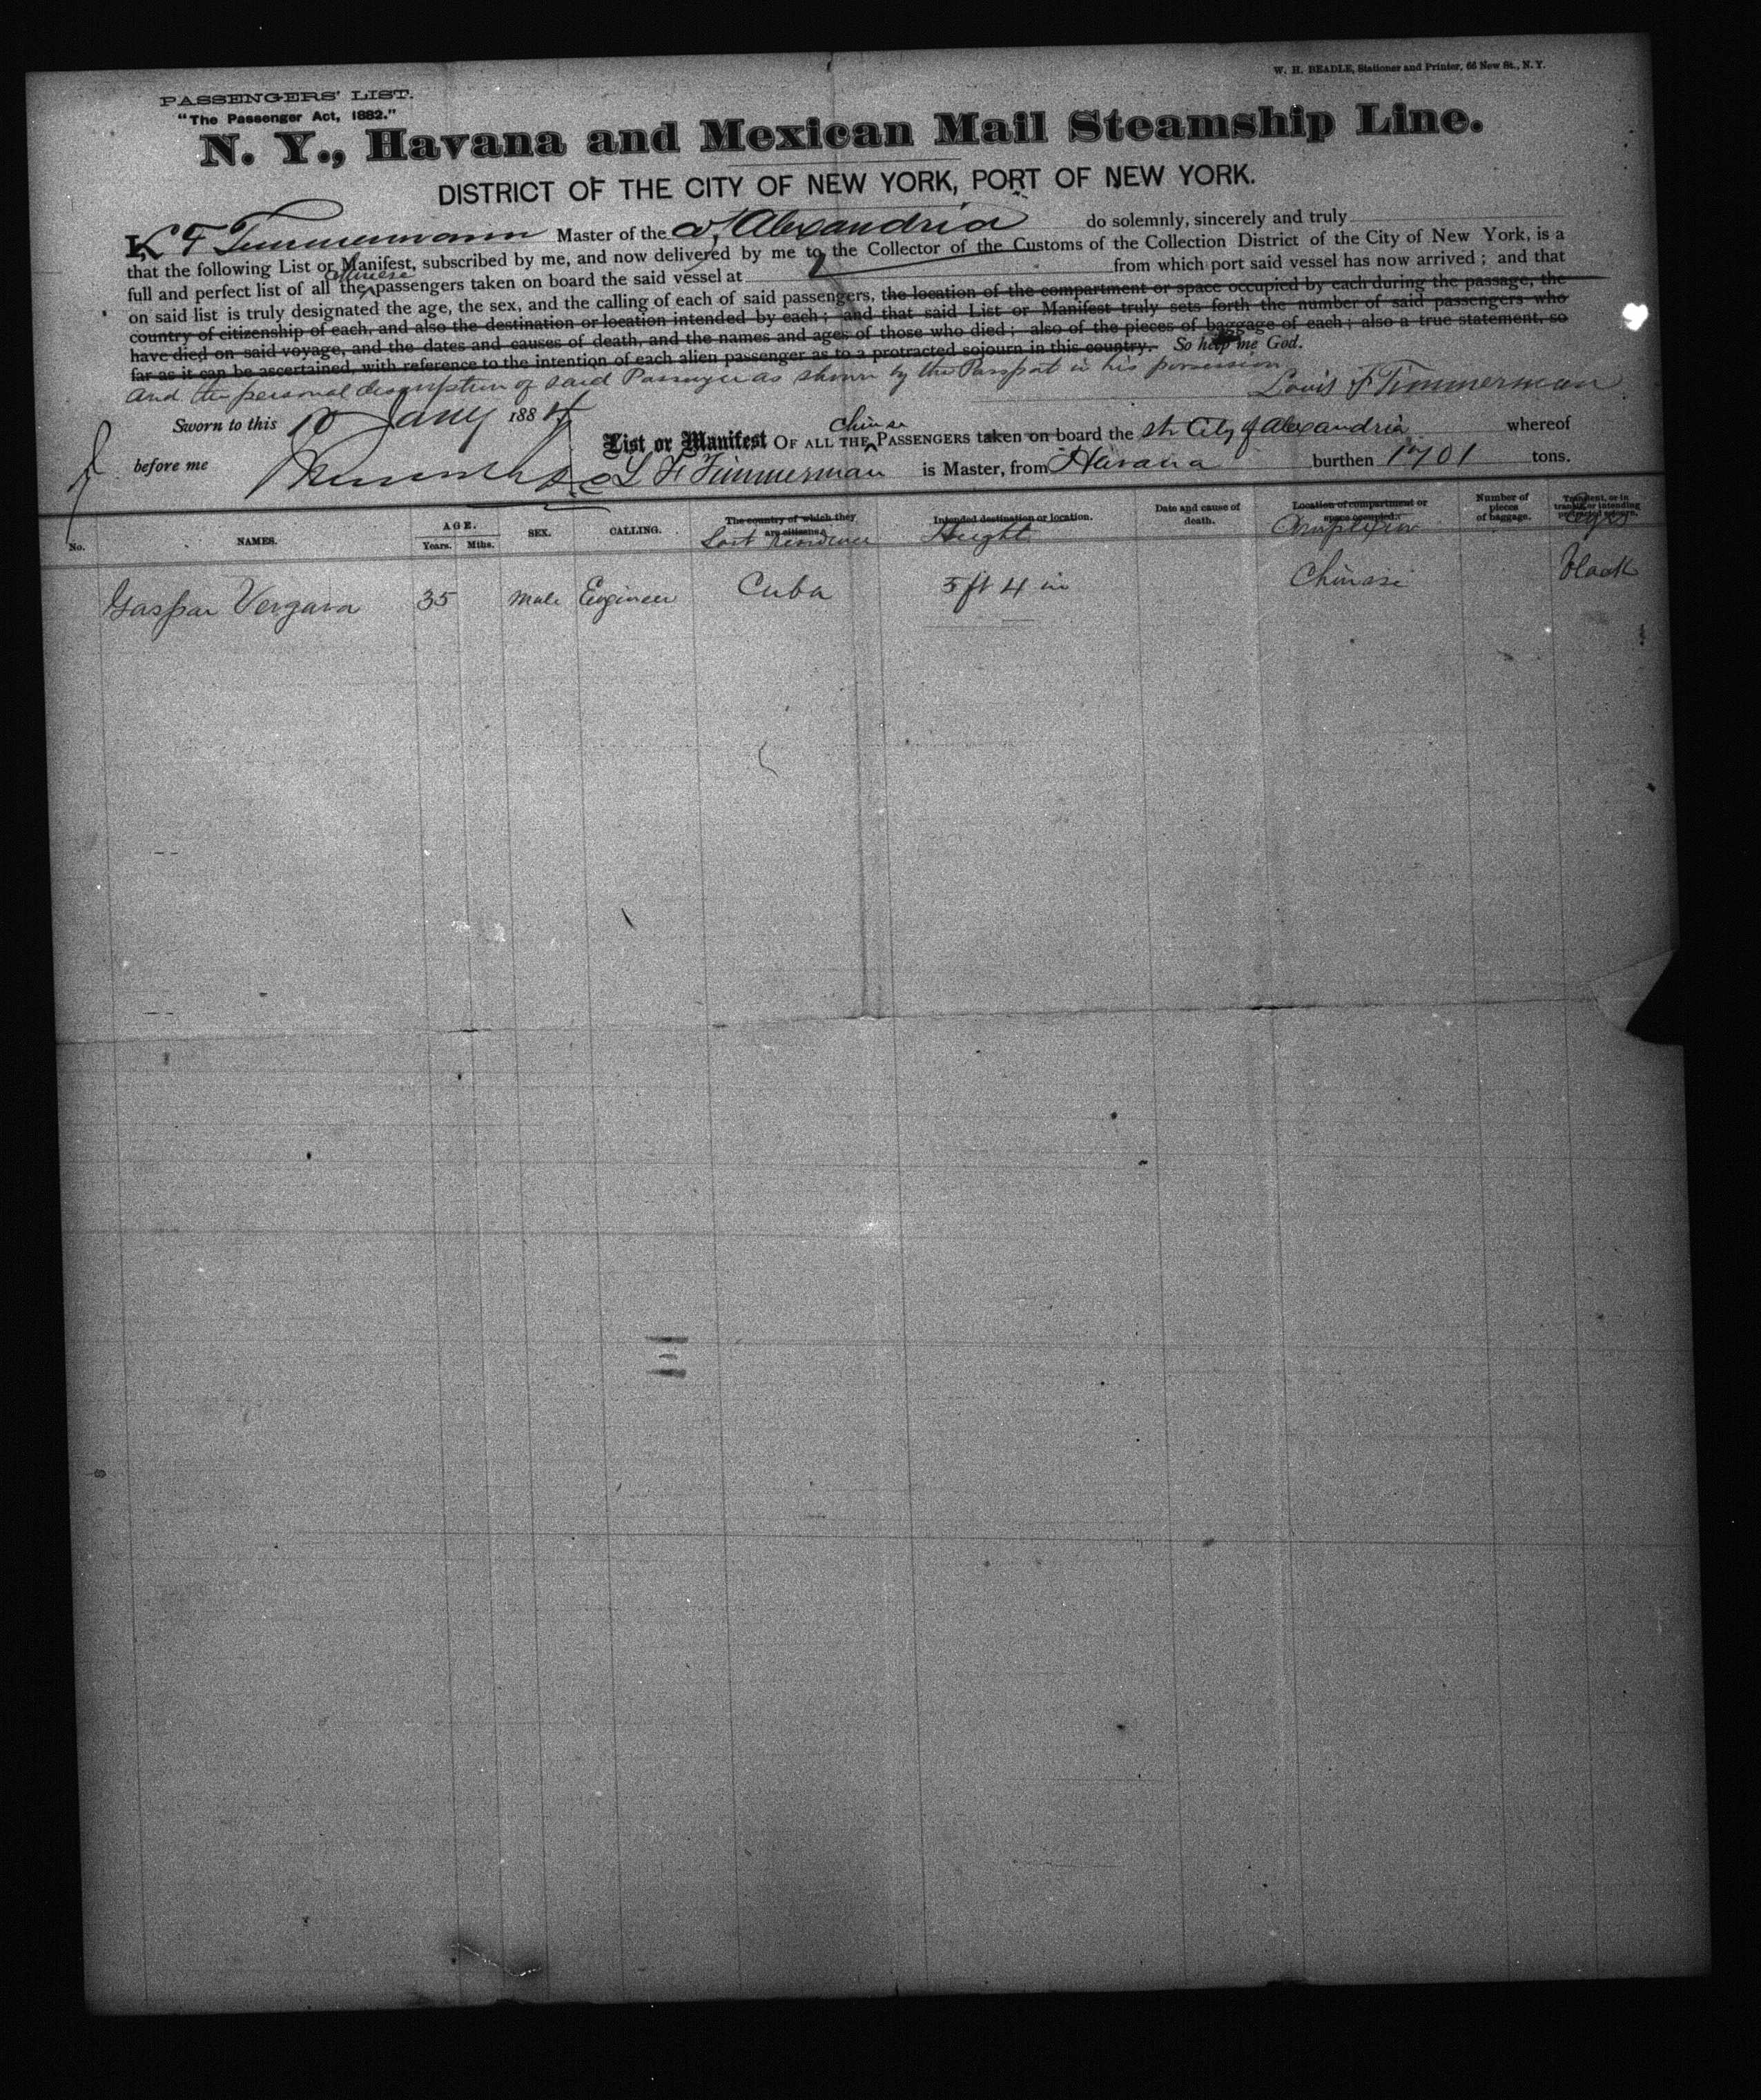 W. H. BEADLE, Stationer and Printer, 66 New St., N.Y.
PASSENGERS' LIST.
"The Passenger Act, 1882."
N. Y., Havana and Mexican Mail Steamship Line.
DISTRICT OF THE CITY OF NEW YORK, PORT OF NEW YORK.
I, L F Timmermann Master of the Alexandria do solemnly, sincerely and truly
that the following List or Manifest, subscribed by me, and now delivered by me to the Collector of the Customs of the Collection District of the City of New York, is a
full and perfect list of all the Chinese passengers taken on board the said vessel at from which port said vessel has now arrived; and that
on said list is truly designated the age, the sex, and the calling of each of said passengers, the location of the compartment or space occupied by each during the passage, the
country of citizenship of each, and also the destination or location intended by each; and that said List or Manifest truly sets forth the number of said passengers who
have died on said voyage, and the dates and causes of death, and the names and ages of those who died; also of the pieces of baggage of each; also a true statement, so
far as it can be ascertained, with reference to the intention of each alien passenger as to a protracted sojourn in this country. So help me God.
and the personal description of said Passenger as shown by the Passport in his possession
Louis F Timmerman
Sworn to this 10 Jany 188
before me
List or Manifest OF ALL THE Chinese PASSENGERS taken on board the str City of Alexandria whereof
L F Timmerman is Master, from Havana burthen 1701 tons.
No. NAMES. AGE. Years. Mths. SEX. CALLING. The country of which they are citizens. Last Residence Intended destination or location. Height Date and cause of death. Location of compartment or space occupied. Complexion Number of pieces of baggage. Transient, or in transit, or intending protracted sojourn. eyes
Gaspar Vergara 35 Male Engineer Cuba 5 ft 4 in Chinese black